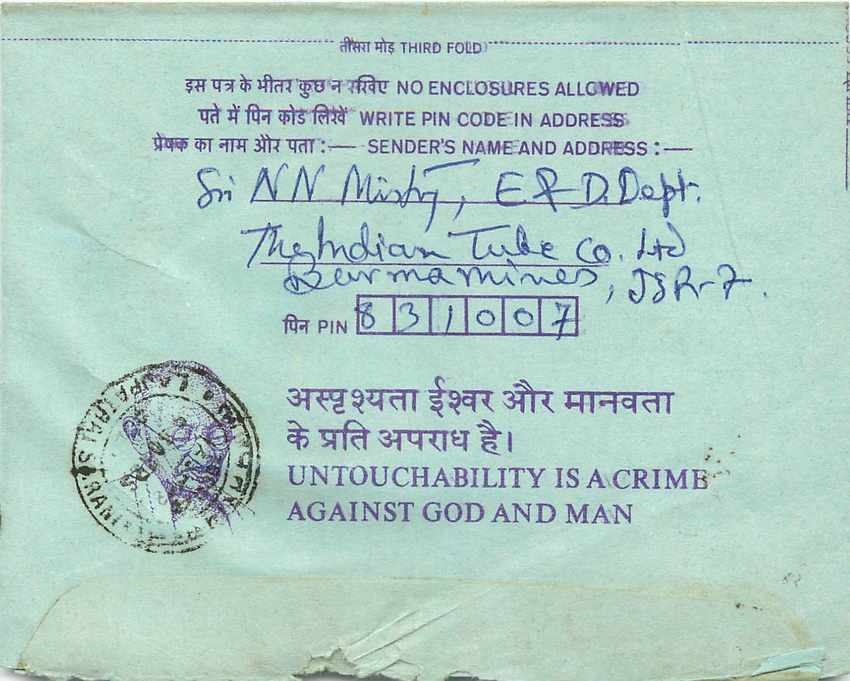 तीसरा मोड़ THIRD FOLD
इस पत्र के भीतर कुछ न रखिए NO ENCLOSURES ALLOWED
पते में पिन कोड लिखें WRITE PIN CODE IN ADDRESS
प्रेषक का नाम और पता :— SENDER'S NAME AND ADDRESS :—
Sri N N Mistry, E & D. Dept.
The Indian Tube Co. Ltd
Burmamines, JSR-7.
पिन PIN 831007
अस्पृश्यता ईश्वर और मानवता
के प्रति अपराध है।
UNTOUCHABILITY IS A CRIME
AGAINST GOD AND MAN
LAJPATRAI